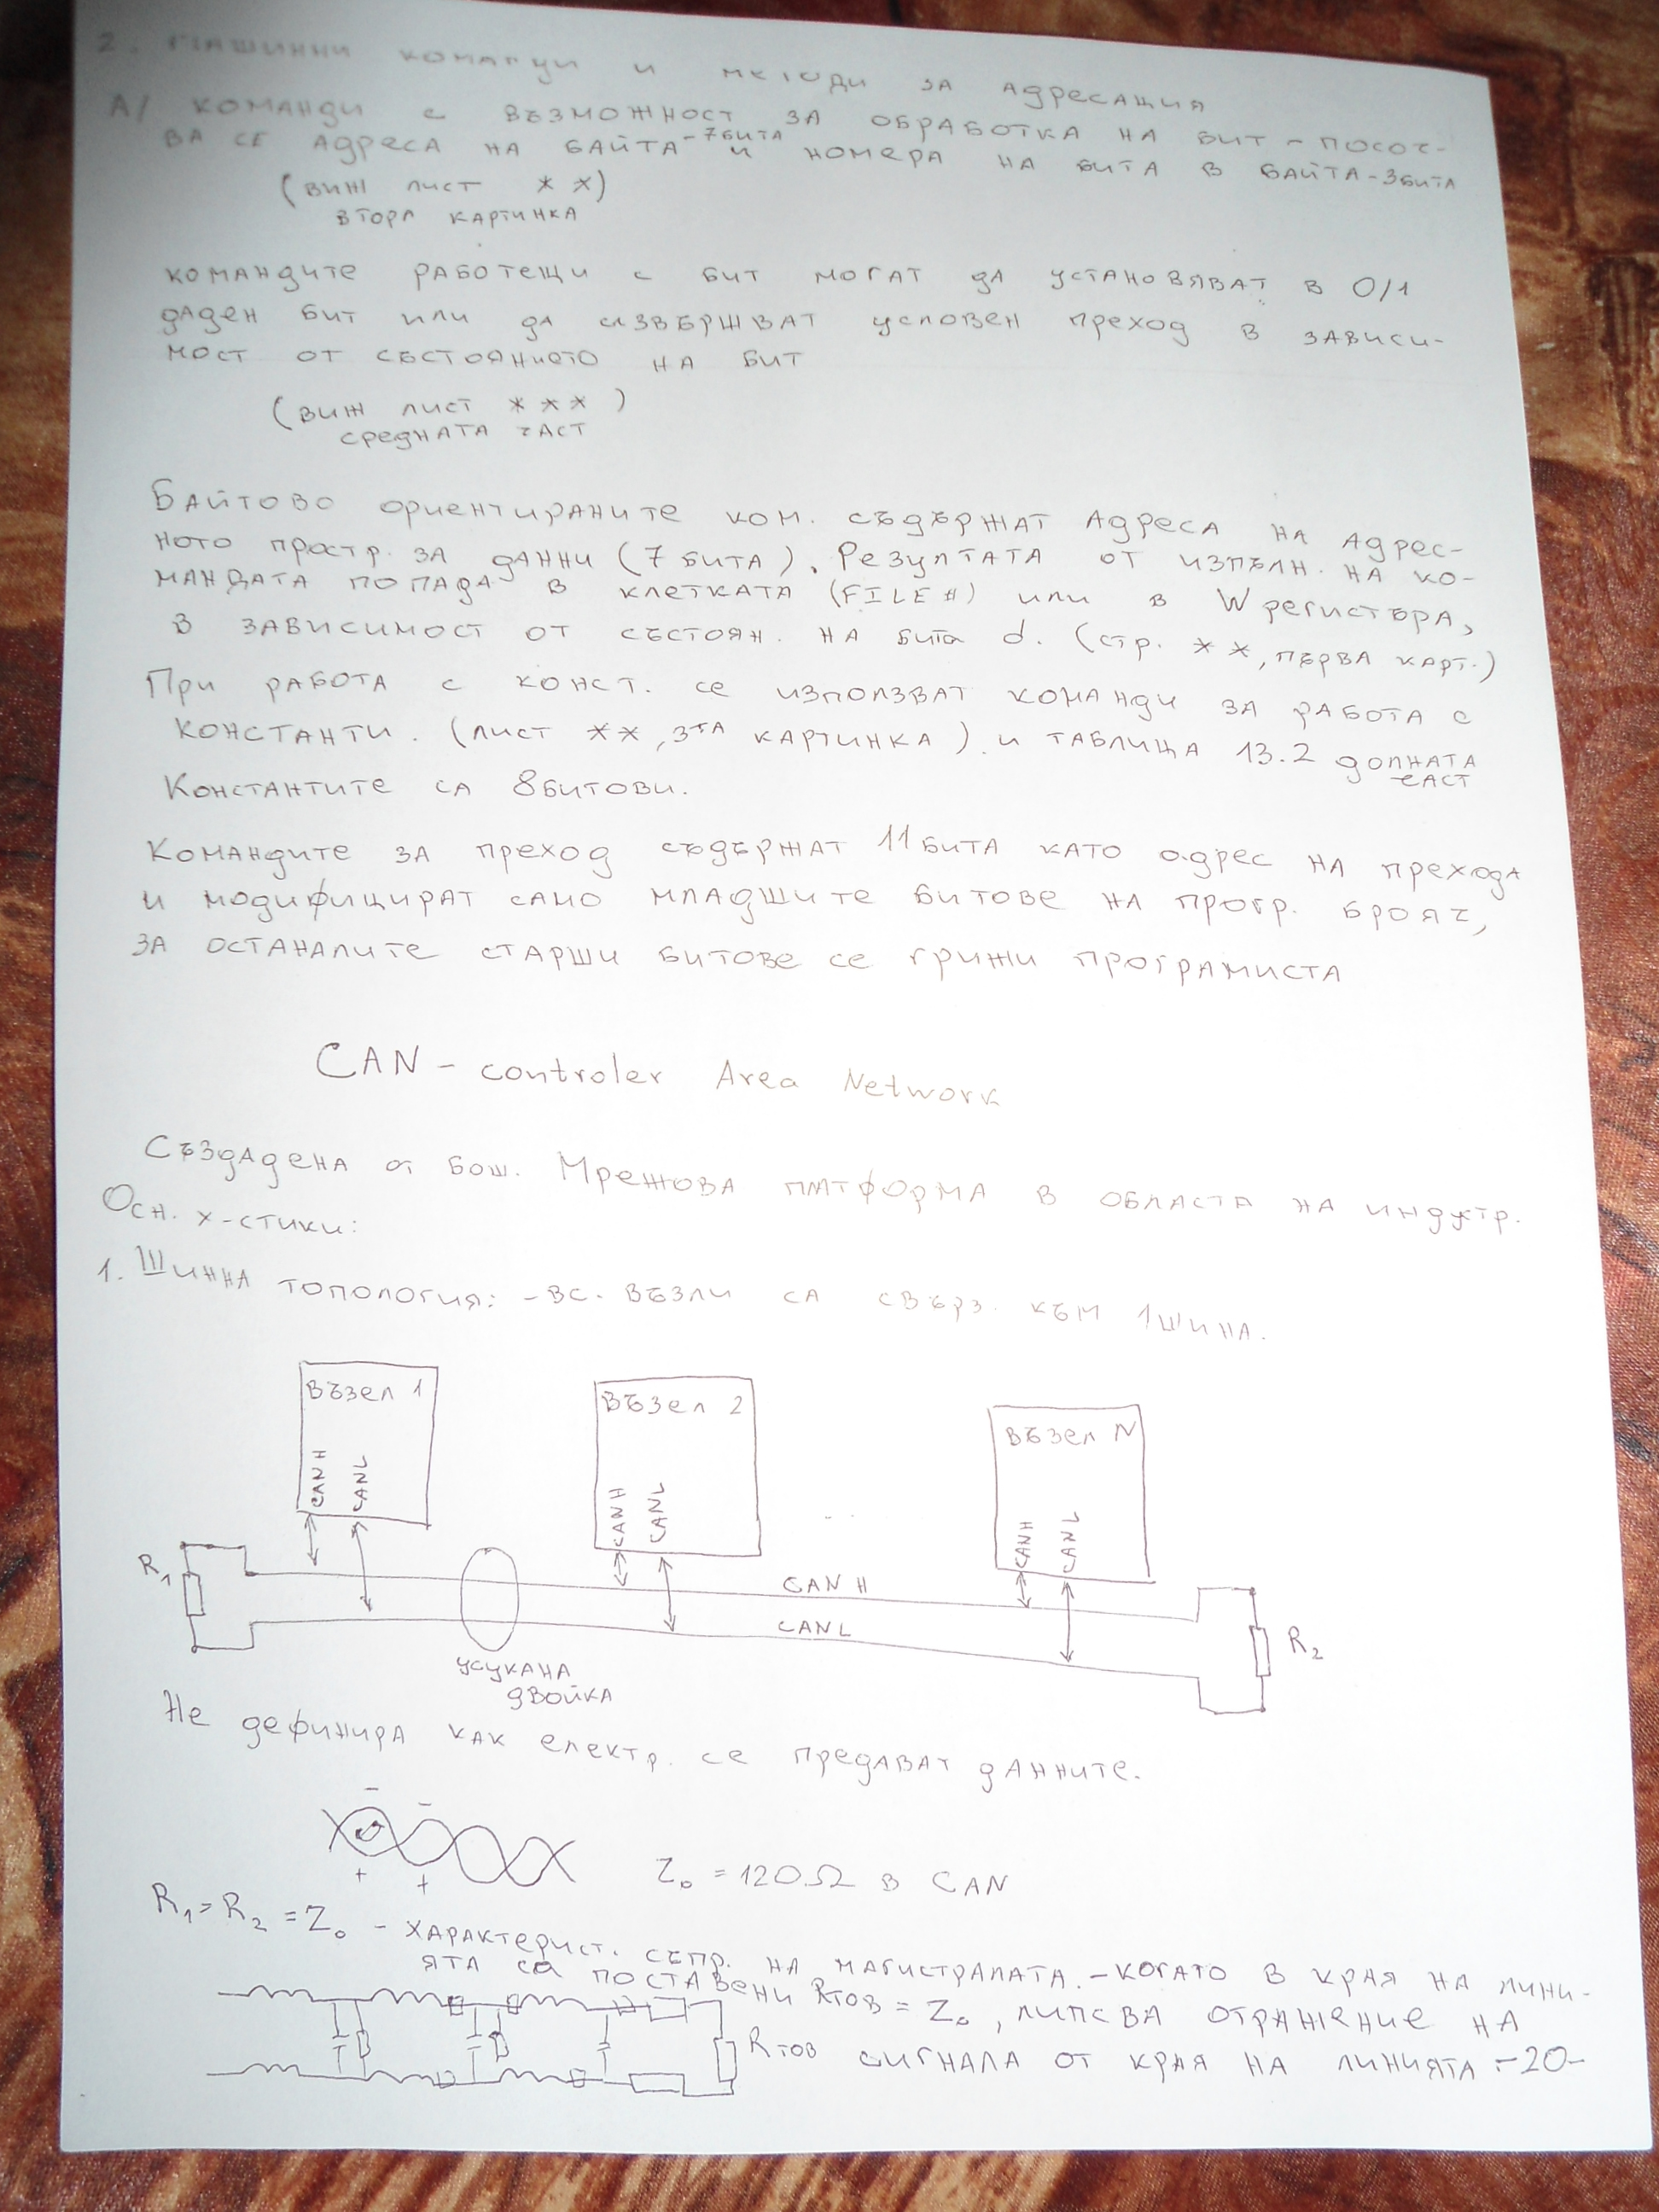 2. Машинни команди и методи за адресация
А/ команди с възможност за обработка на бит - посоч-
ва се адреса на байта - 7бита и номера на бита в байта - 3бита
(виж лист * *)
втора картинка
командите работещи с бит могат да установяват в 0/1
даден бит или да извършват условен преход в зависи-
мост от състоянието на бит
(виж лист * * *)
средната част
Байтово ориентираните ком. съдържат адреса на адрес-
ното простр. за данни (7 бита). Резултата от изпълн. на ко-
мандата попада в клетката (FILE #) или в W регистъра,
в зависимост от състоян. на бита d. (стр. * *, първа карт.)
При работа с конст. се използват команди за работа с
константи. (лист * *, 3та картинка) и таблица 13.2 долната част
Константите са 8битови.
Командите за преход съдържат 11бита като адрес на прехода
и модифицират само младшите битове на прогр. брояч,
за останалите старши битове се грижи програмиста
CAN - controler Area Network
Създадена от Бош. Мрежова платформа в областа на индустр.
Осн. х-стики:
1. Шинна топология: - вс. възли са свърз. към 1шина.
Възел 1
Възел 2
Възел N
CANH
CANL
CANH
CANL
CANH
CANL
R1
CANH
CANL
R2
усукана
двойка
Не дефинира как електр. се предават данните.
- -
+ +
Z0 = 120Ω в CAN
R1 = R2 = Z0 - характерист. съпр. на магистралата. - когато в края на лини-
ята са поставени Rтов = Z0, липсва отражение на
Rтов сигнала от края на линията -20-